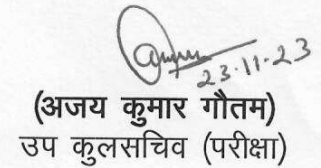 23.11.23
(अजय कुमार गौतम)
उप कुलसचिव (परीक्षा)